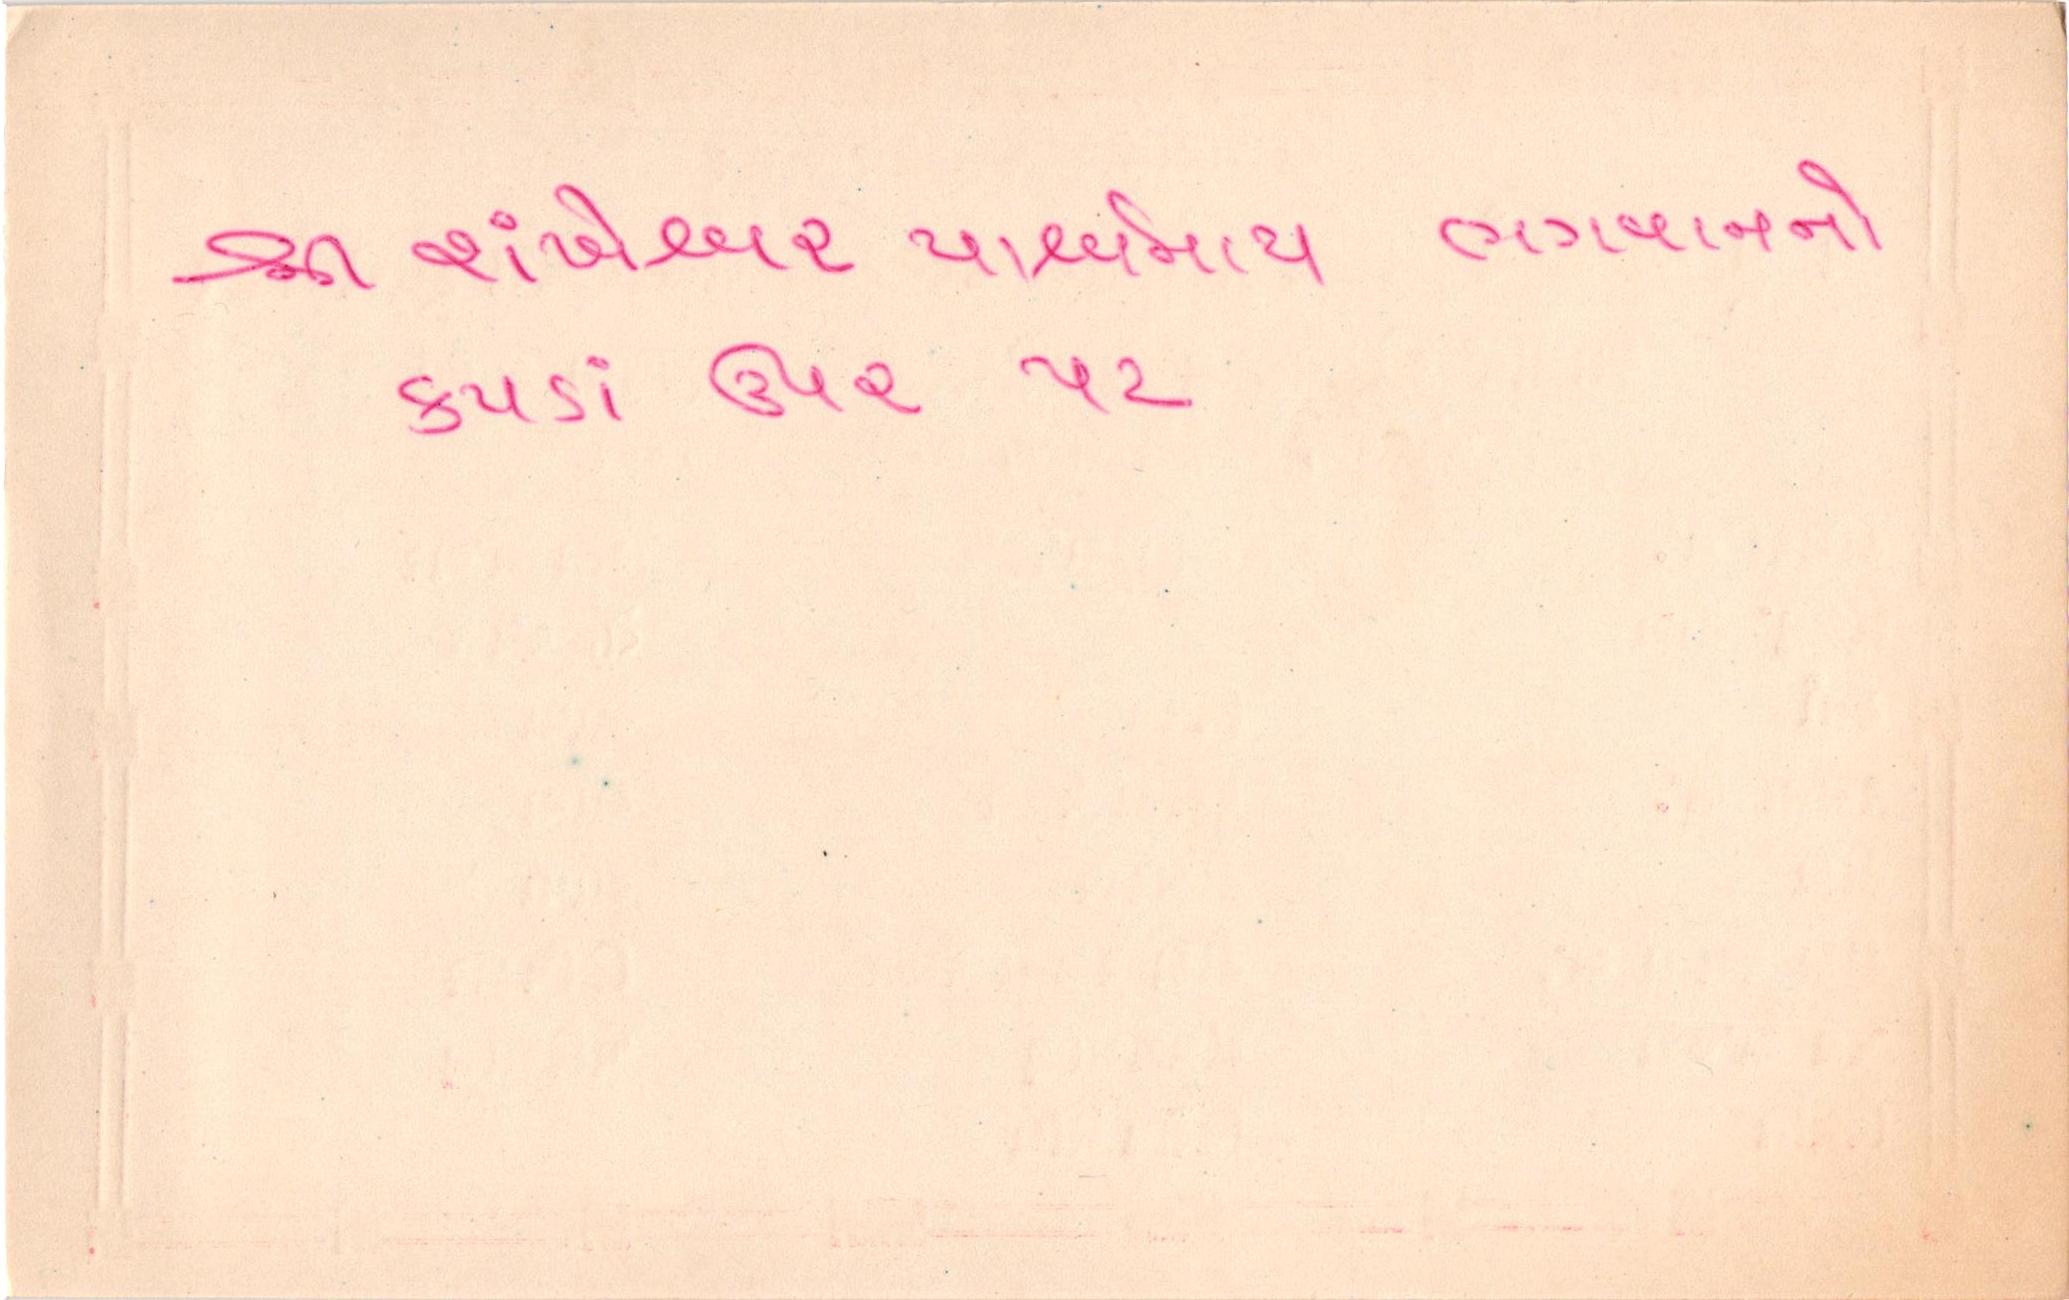 શ્રી શંખેશ્વર પાર્શ્વનાથ ભગવાનનો
કપડાં ઊપર પટ